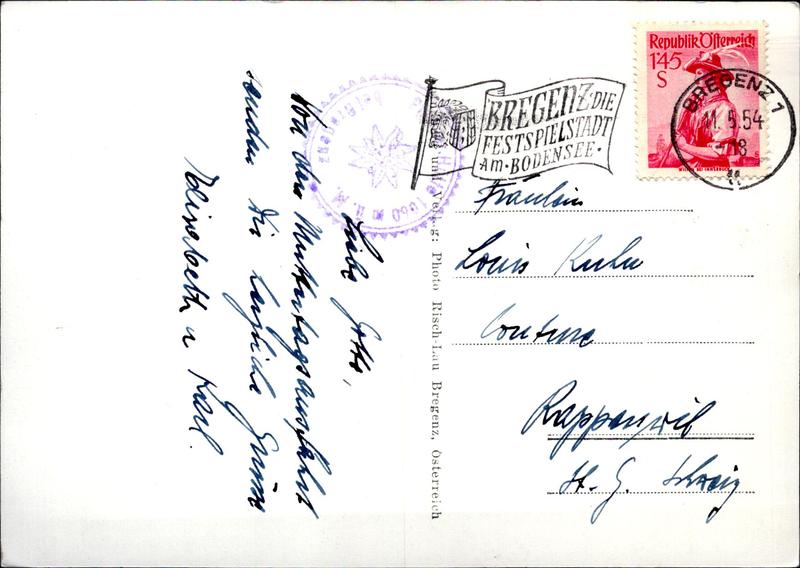 Republik Österreich
1'45
S
BREGENZ 1
11.5.54
-18
BREGENZ·DIE
FESTSPIELSTADT
AM·BODENSEE·
Fräulein
Louis Kuhn
Couture
Rapperswil
St. G. Schweiz
Verlag: Photo Risch-Lau Bregenz, Österreich
Liebe Gotte,
Von dem Muttertagsausfahrt
senden Dir herzliche Grüsse
Elisabeth u Karl.
1060 m ü. M.